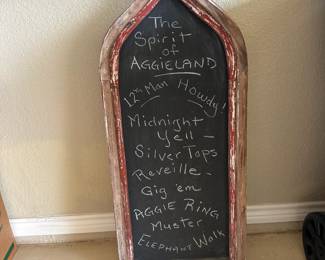 The
Spirit
of
AGGIELAND
12th Man Howdy!
Midnight
Yell -
Silver Taps
Reveille -
Gig 'em
AGGIE RING
Muster
ELEPHANT Walk